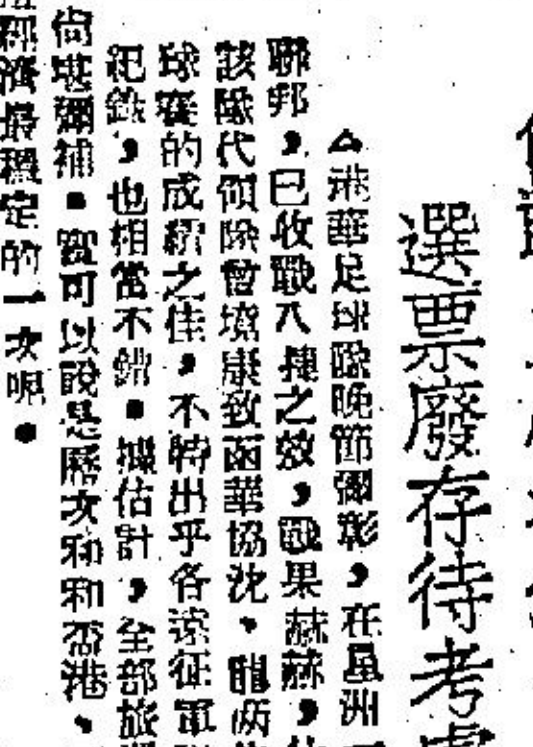 選票廢存待考慮
△港華足球隊晚節彌彰，在星洲
聯邦，已收戰八捷之效，戰果赫赫，
該隊代領隊曾埼康致函華協沈、龍兩
球賽的成績之佳，不特出乎各遠征軍
紀錄，也相當不錯。據估計，全部旅
尚堪彌補。實可以說是歷次和和盃港、
經濟最穩定的一次呢。